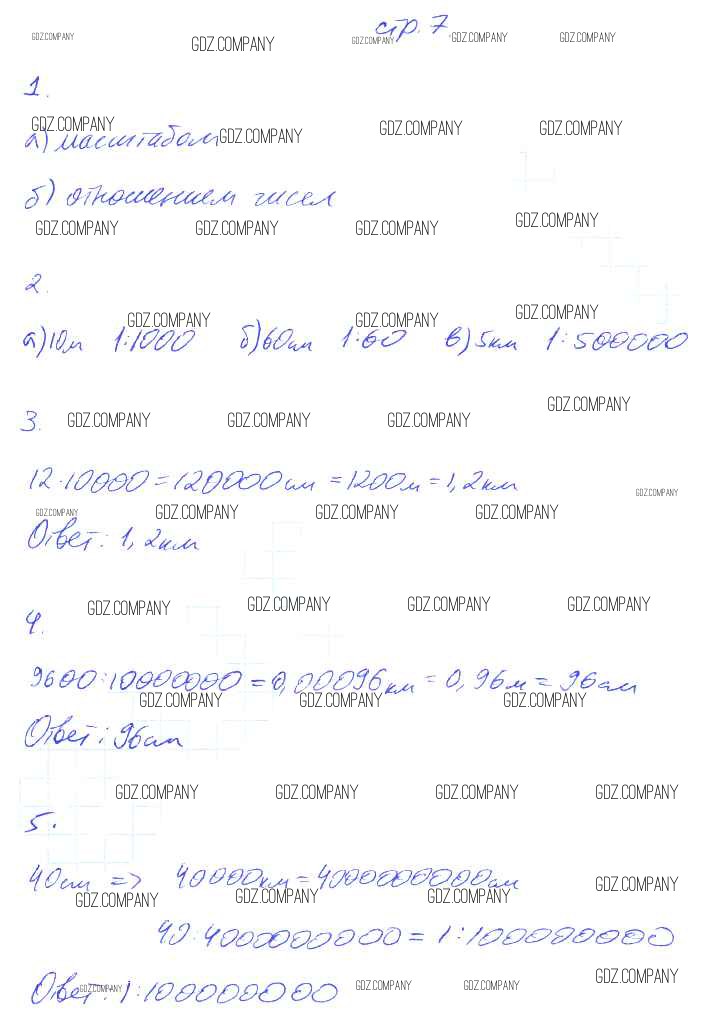 стр. 7
GDZ.COMPANY GDZ.COMPANY GDZ.COMPANY GDZ.COMPANY GDZ.COMPANY
1.
GDZ.COMPANY GDZ.COMPANY GDZ.COMPANY GDZ.COMPANY
а) масштабом
б) отношением чисел
GDZ.COMPANY GDZ.COMPANY GDZ.COMPANY GDZ.COMPANY
2.
GDZ.COMPANY GDZ.COMPANY GDZ.COMPANY
а) 10м 1:1000 б) 60см 1:60 в) 5км 1:500000
3. GDZ.COMPANY GDZ.COMPANY GDZ.COMPANY GDZ.COMPANY
12·10000=120000см=1200м=1,2км
GDZ.COMPANY GDZ.COMPANY GDZ.COMPANY GDZ.COMPANY GDZ.COMPANY
Ответ: 1,2км
GDZ.COMPANY GDZ.COMPANY GDZ.COMPANY GDZ.COMPANY
4.
9600:10000000=0,00096км=0,96м=96см
GDZ.COMPANY GDZ.COMPANY GDZ.COMPANY
Ответ: 96см
GDZ.COMPANY GDZ.COMPANY GDZ.COMPANY GDZ.COMPANY
5.
40см => 40000км=4000000000см
GDZ.COMPANY GDZ.COMPANY GDZ.COMPANY GDZ.COMPANY
40:4000000000=1:100000000
Ответ: 1:100000000
GDZ.COMPANY GDZ.COMPANY GDZ.COMPANY GDZ.COMPANY